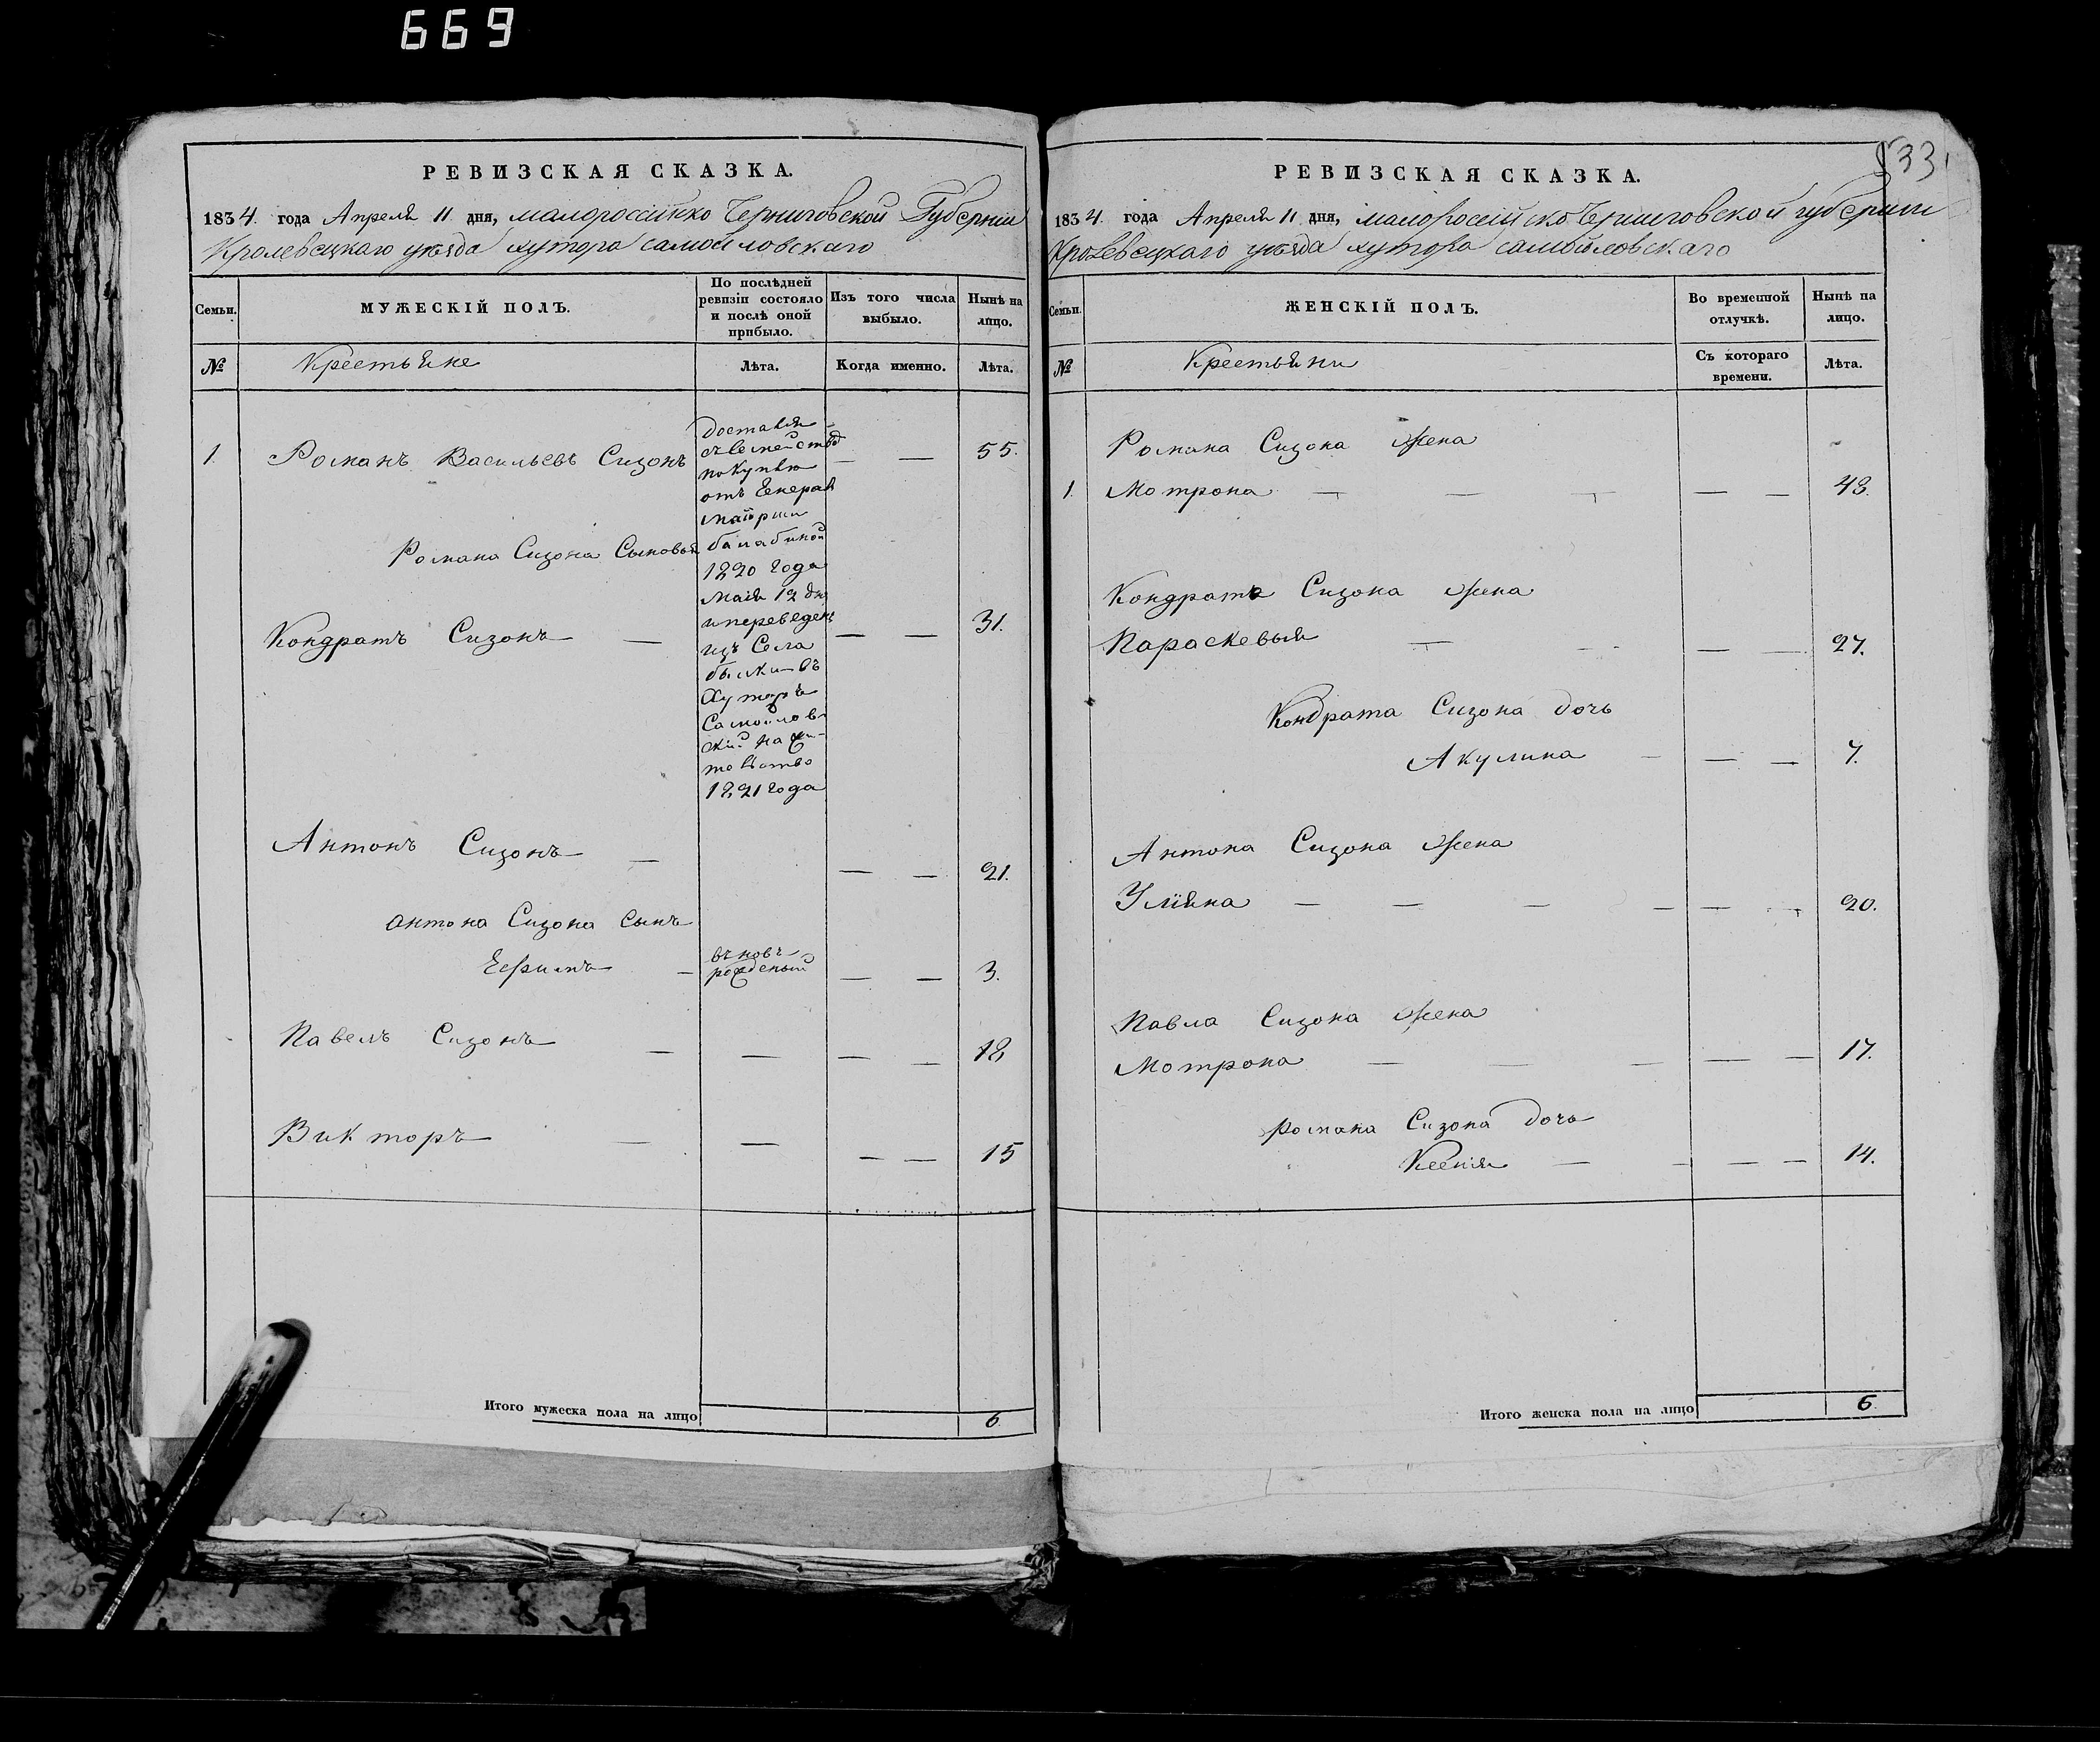 669
РЕВИЗСКАЯ СКАЗКА.
1834. года Апреля 11 дня, малороссійско Черниговской Губерніи
Кролевецкаго уѣзда хутора самойловскаго
Семьи.
МУЖЕСКІЙ ПОЛЪ.
По послѣдней
ревизіи состояло
и послѣ оной
прибыло.
Изъ того числа
выбыло.
Нынѣ на
лицо.
№
Крестьяне
Лѣта.
Когда именно.
Лѣта.
1.
Романъ Васильевъ Сизонъ
— —
55.
Романа Сизона Сыновья
Кондратъ Сизонъ —
— —
31.
покупкою
отъ Генерал
маіорши
балабиной
1820 года
маія 12 дня
и переведенъ
изъ Села
в
Хуторъ
Самойлов
скій на жи-
1821 года
Антонъ Сизонъ —
— —
21.
антона Сизона сынъ
Ефимъ —
вновь
рожденый
— —
3.
Павелъ Сизонъ —
—
— —
18
Викторъ —
—
— —
15
Итого мужеска пола на лицо
6
533
РЕВИЗСКАЯ СКАЗКА.
1834. года Апреля 11 дня, малоросій ско Черниговской губерніи
Кролевецкаго уѣзда хутора самойловскаго
Семьи.
ЖЕНСКІЙ ПОЛЪ.
Во временной
отлучкѣ.
Нынѣ на
лицо.
№
Крестьяни
Съ котораго
времени.
Лѣта.
Романа Сизона жена
1. Мотрона — — — — — 43.
Кондрата Сизона жена
Параскевыя — — — — 27.
Кондрата Сизона дочь
Акулина — — — 7.
Антона Сизона жена
Уліяна — — — — — — 20.
Павла Сизона жена
Мотрона — — — — — 17.
романа Сизона дочь
Ксенія — — — — 14.
Итого женска пола на лицо
6.